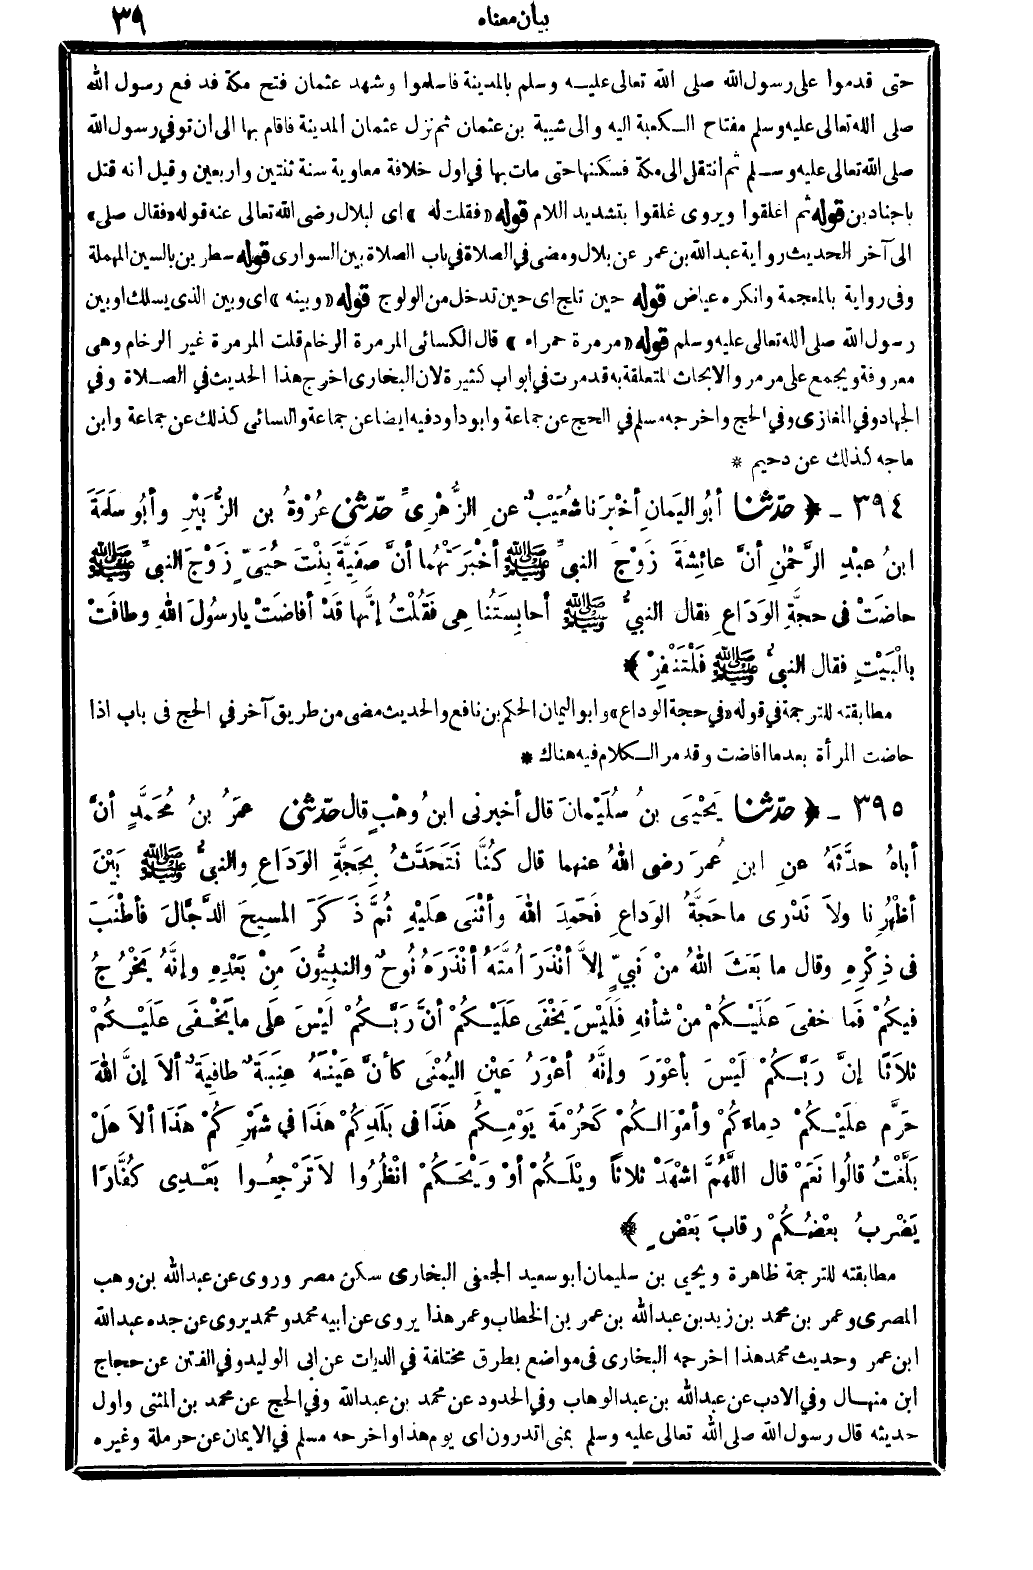 بيان معناه ٣٩
حتى قدموا على رسول الله صلى الله تعالى عليه وسلم بالمدينة فاسلموا وشهد عثمان فتح مكة فدفع رسول الله
صلى الله تعالى عليه وسلم مفتاح الكعبة اليه والى شيبة بن عثمان ثم نزل عثمان المدينة فاقام بها الى ان توفي رسول الله
صلى الله تعالى عليه وسلم ثم انتقل الى مكة فسكنها حتى مات بها في اول خلافة معاوية سنة ثنتين واربعين وقيل انه قتل
باجنادين قوله ثم اغلقوا ويروى غلقوا بتشديد اللام قوله «فقلت له» اى لبلال رضى الله تعالى عنه قوله «فقال صلى»
الى آخر الحديث رواية عبد الله بن عمر عن بلال ومضى في الصلاة في باب الصلاة بين السوارى قوله سطرين بالسين المهملة
وفى رواية بالمعجمة وانكره عياض قوله حين تلج اى حين تدخل من الولوج قوله «وبينه» اى وبين الذى يسلك اوبين
رسول الله صلى الله تعالى عليه وسلم قوله «مرمرة حمراء» قال الكسائى المرمرة الرخام قلت المرمرة غير الرخام وهى
معروفة ويجمع على مرمر والابحاث المتعلقة به قد مرت في ابواب كثيرة لان البخارى اخرج هذا الحديث في الصلاة وفي
الجهاد وفي المغازى وفي الحج واخرجه مسلم في الحج عن جماعة وابو داود فيه ايضا عن جماعة والنسائى كذلك عن جماعة وابن
ماجه كذلك عن دحيم *
٣٩٤ - ﴿ حدّثنا أبُو اليَمانِ أخْبَرَنا شُعَيْبٌ عنِ الزُّهْرِىِّ حدّثنى عُرْوَةُ بن الزُّبَيْرِ وأبُو سلَمَةَ
ابنُ عبْدِ الرَّحْمٰنِ أنَّ عائِشَةَ زَوْجَ النبىِّ ﷺ أخْبَرَتْهُما أنَّ صَفِيَّةَ بِنْتَ حُيَىٍّ زَوْجَ النبىِّ ﷺ
حاضَتْ فى حجَّةِ الوَدَاعِ فقال النبىُّ ﷺ أحابِسَتُنا هِى فَقُلْتُ إنَّها قَدْ أفاضَتْ يارسُولَ اللهِ وطافَتْ
بالْبَيْتِ فقال النبىُّ ﷺ فَلْتَنْفِرْ ﴾
مطابقته للترجمة في قوله «في حجة الوداع» وابو اليمان الحكم بن نافع والحديث مضى من طريق آخر في الحج فى باب اذا
حاضت المرأة بعد ما افاضت وقد مر الكلام فيه هناك *
٣٩٥ - ﴿ حدّثنا يَحْيَى بنُ سُلَيْمانَ قال أخبرنى ابنُ وهْبٍ قال حدّثنى عمَرُ بنُ مُحَمَّدٍ أنَّ
أباهُ حدَّثَهُ عنِ ابنِ عُمرَ رضى اللهُ عنهما قال كُنَّا نَتَحَدَّثُ بِحَجَّةِ الوَدَاعِ والنبىُّ ﷺ بَيْنَ
أظْهُرِنا ولاَ نَدْرى ماحَجَّةُ الوَداعِ فَحَمِدَ اللهَ وأثْنَى علَيْهِ ثُمَّ ذَكَرَ المسِيحَ الدَّجَّالَ فأطْنَبَ
فى ذِكْرِهِ وقال ما بَعَثَ اللهُ مِنْ نَبىٍّ إلاَّ أنْذَرَ اُمَّتَهُ أنْذَرَهُ نُوحٌ والنبِيُّونَ مِنْ بَعْدِهِ وإنَّهُ يَخْرُجُ
فيكُمْ فَما خفىَ علَيْكُمْ مِنْ شأنِهِ فلَيْسَ يَخْفَى علَيْكُمْ أنَّ رَبَّكُمْ لَيْسَ علَى ما يَخْفَى علَيْكُمْ
ثلاَثًا إنَّ رَبَّكُمْ لَيْسَ بأعْوَرَ وإنَّهُ أعْوَرُ عَيْنِ اليُمْنَى كأنَّ عَيْنَهُ عِنَبَةٌ طافِيَةٌ ألاَ إنَّ اللهَ
حَرَّمَ علَيْكُمْ دِماءكُمْ وأمْوَالَكُمْ كَحُرْمَةِ يَوْمِكُمْ هَذَا فى بَلَدِكُمْ هَذَا في شَهْرِكُمْ هَذَا ألاَ هَلْ
بَلَّغْتُ قالُوا نَعَمْ قال اللَّهُمَّ اشْهَدْ ثلاَثاً ويْلَكُمْ أوْ وَيْحَكُمْ انْظُرُوا لاَتَرْجِعُوا بَعْدِى كُفَّارًا
يَضْرِبُ بعْضُكُمْ رقابَ بَعْضٍ ﴾
مطابقته للترجمة ظاهرة ويحيى بن سليمان ابو سعيد الجعفى البخارى سكن مصر وروى عن عبد الله بن وهب
المصرى وعمر بن محمد بن زيد بن عبد الله بن عمر بن الخطاب وعمر هذا يروى عن ابيه محمد ومحمد يروى عن جده عبد الله
ابن عمر وحديث محمد هذا اخرجه البخارى فى مواضع بطرق مختلفة في الديات عن ابى الوليد وفي الفتن عن حجاج
ابن منهال وفي الادب عن عبد الله بن عبد الوهاب وفي الحدود عن محمد بن عبد الله وفي الحج عن محمد بن المثنى واول
حديثه قال رسول الله صلى الله تعالى عليه وسلم بمنى اتدرون اى يوم هذا واخرجه مسلم في الايمان عن حرملة وغيره